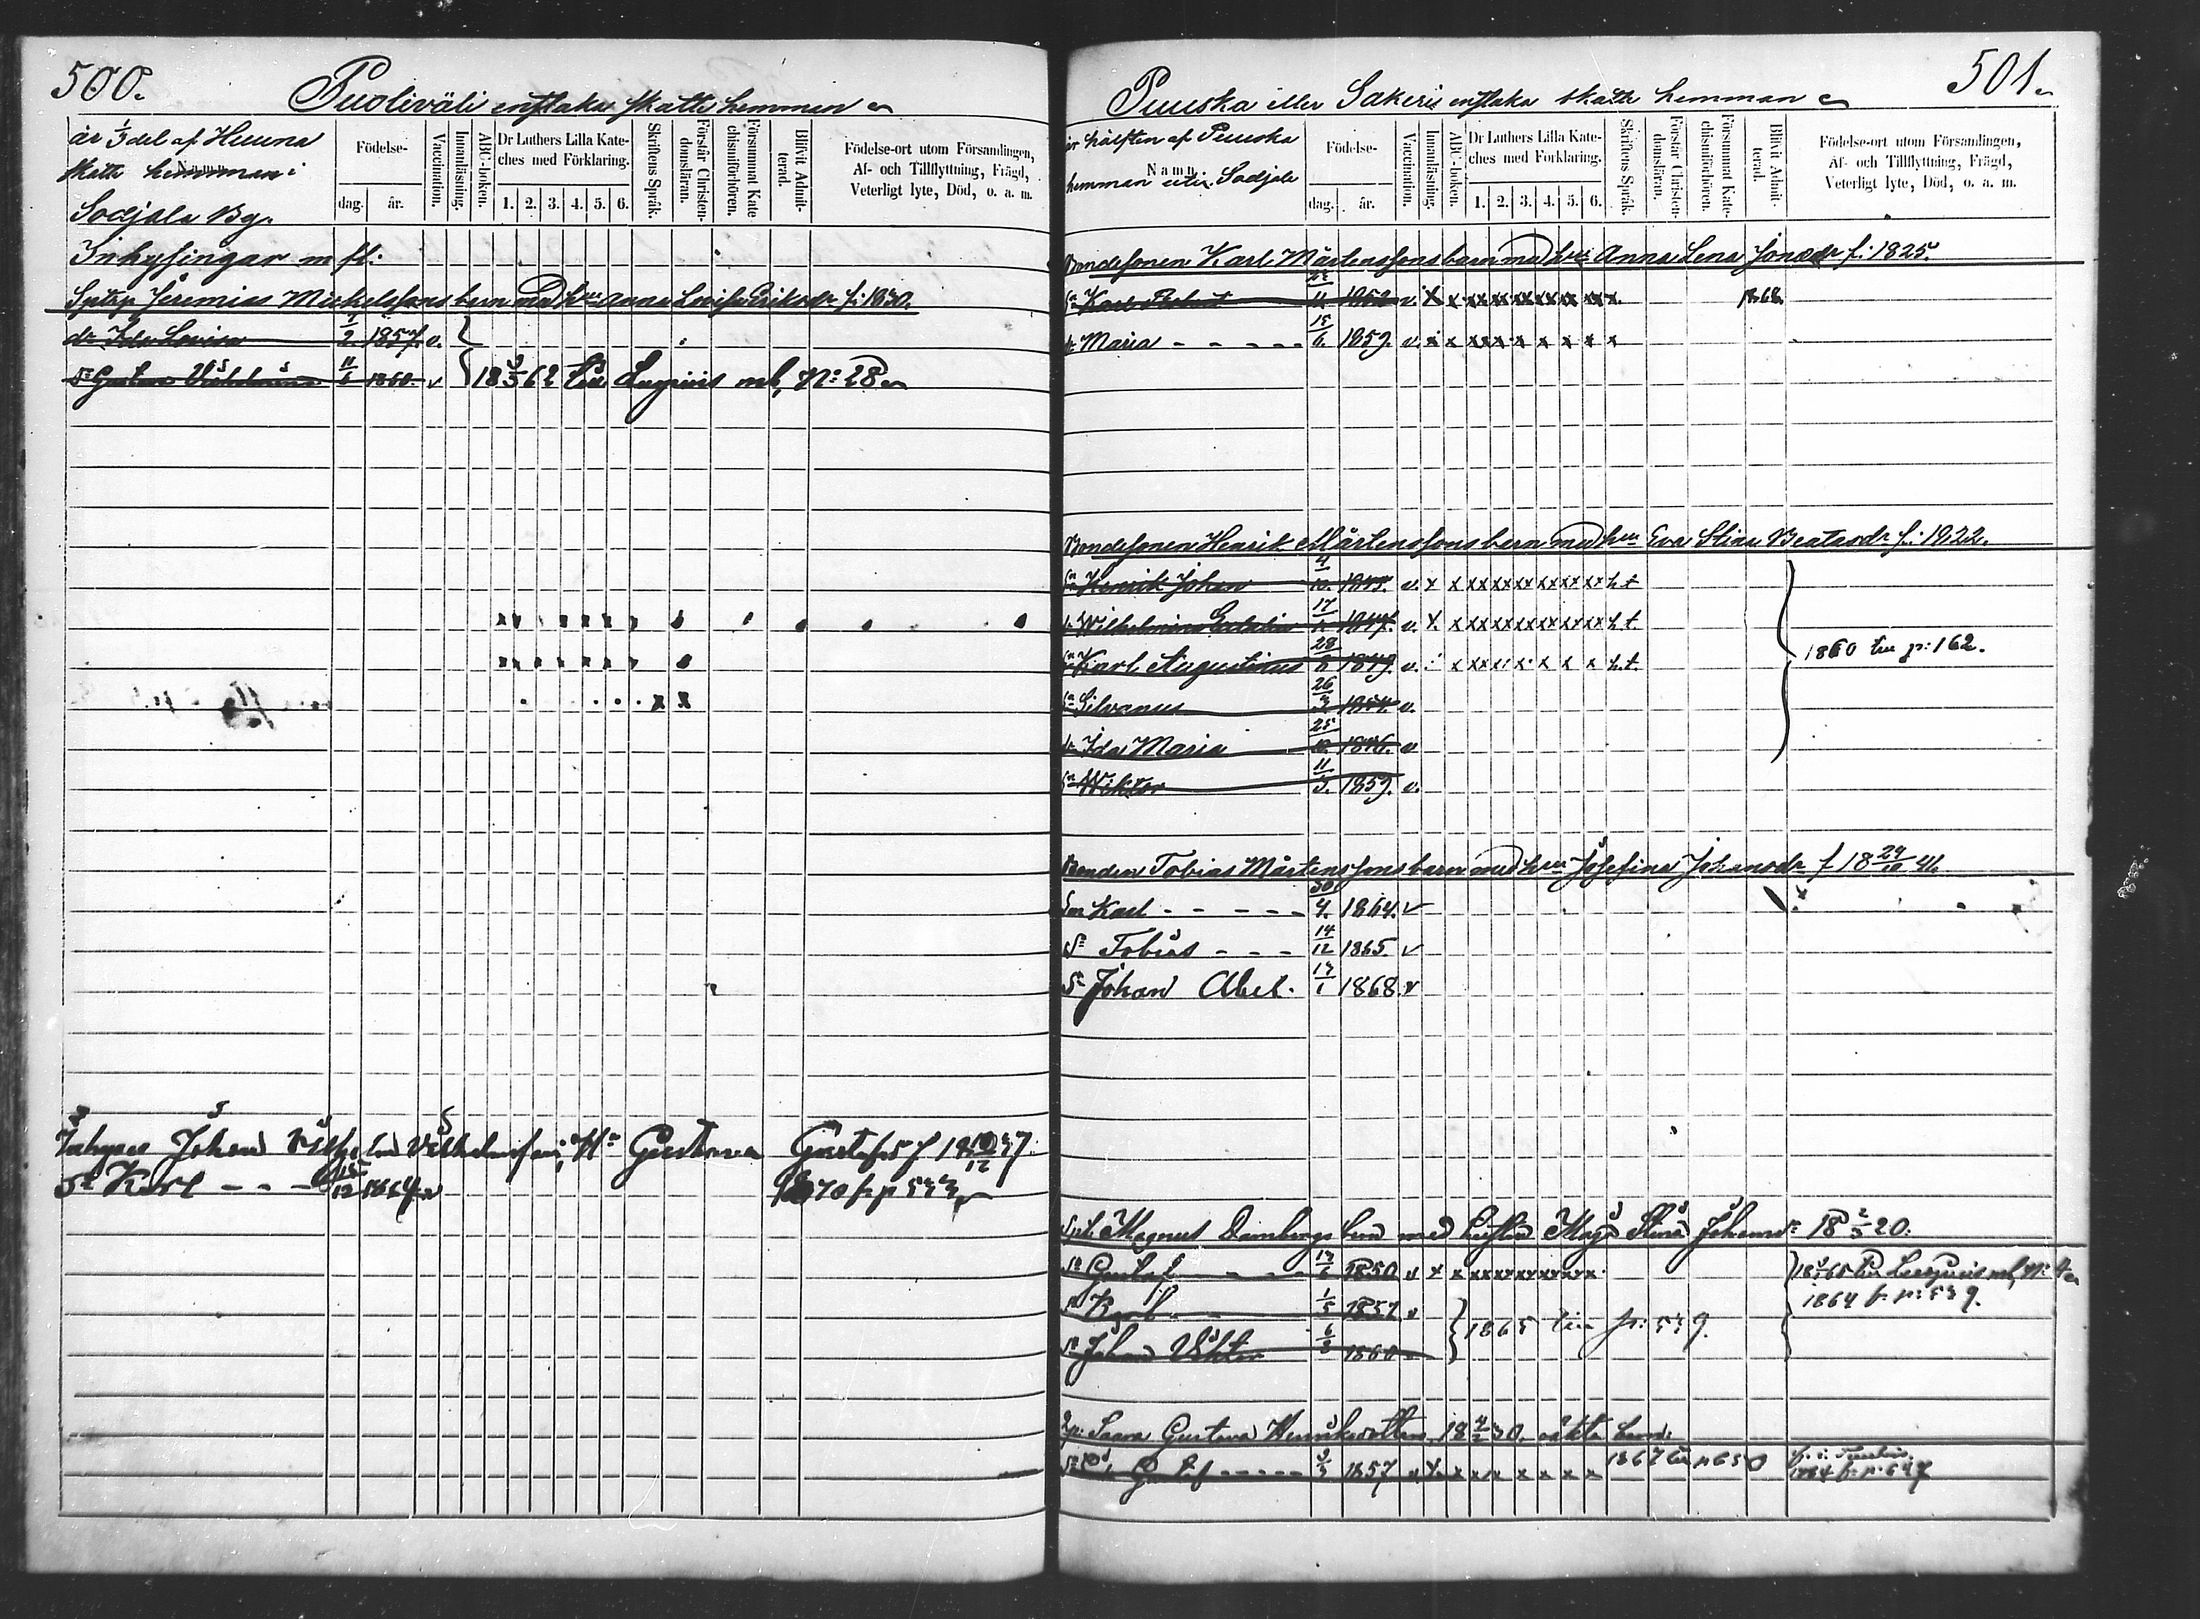 500.
Puoliväli enstaka skatte hemman
är 1/3 del af Heuma
skatte hemman i
Sodjala By.
Namn.
Födelse-
dag. år.
Vaccination.
Innanläsning.
ABC-boken.
Dr Luthers Lilla Kate-
ches med Förklaring.
1. 2. 3. 4. 5. 6.
Skriftens Språk.
Förstår Christen-
domsläran.
Försummat Kate-
chismiförhören.
Blifvit Admit-
terad.
Födelse-ort utom Församlingen,
Af- och Tillflyttning, Frägd,
Veterligt lyte, Död, o. a. m.
Inhysingar m fl:
Jeremias Michelssons barn med hu: Anna Lovisa Eriksdr f: 1830.
dr Ida Lovisa 1/2 1857. v.
Sn Gustav Vilhelm 11/6 1860. v 18 3/5 62 till ml, No: 28
Johan Vilhelm Vilhelmsson, Hu Gustava Gustafsd f 18 10/12 37.
Sn Karl - - - 15/12 1864 v 1870 fr p 533
501.
Puuska eller Sakeri enstaka skatte hemman
är hälften af Puuska
hemman uti Sodjala
Namn.
Födelse-
dag. år.
Vaccination.
Innanläsning.
ABC-boken.
Dr Luthers Lilla Kate-
ches med Förklaring.
1. 2. 3. 4. 5. 6.
Skriftens Språk.
Förstår Christen-
domsläran.
Försummat Kate-
chismiförhören.
Blifvit Admit-
terad.
Födelse-ort utom Församlingen,
Af- och Tillflyttning, Frägd,
Veterligt lyte, Död, o. a. m.
Bondesonen Karl Mårtenssons barn med hu: Anna Lena Jonasdr f: 1825.
Sn Karl 1852 v. x x xx xx xx xx xx xx x. 1868.
dr Maria - - - - - 15/6. 1859. v. x x xx x x x x x x
Bondesonen Henrik Mårtenssons barn med hun Eva Stina Beatasdr f: 1822.
Sn Henrik Johan 4/10. 1845. v. x x xx xx xx xx xx xx h.t
dr Wilhelmina 17/ 1847. v. x. x xx xx xx xx xx xx h.t.
Sn Karl Augustinus 28/8 1849. v. x xx x x x x x h.t. 1860 till p: 162.
Sn Silvanus 26/3. 1854. v.
dr Ida Maria 25/10. 1856. v
Sn Wiktor 11/3. 1859. v.
Bonden Tobias Mårtenssons barn med hun Josefina Johansdr f 18 29/10 41.
Sn Karl - - - - - 30/4. 1864. v
Sn Tobias - - - 14/12 1865. v
Sn Johan Abel. 17/1 1868. v
Magnus Dambergs barn med hustrun Maja Stina Johansdr 18 2/3 20.
Sn Gustaf - - - - 13/6 1850 v x x xx xx xx xx xx x.
1864 fr p: 539.
Sn Karl 1/5 1857 v 1865 till p: 539.
Sn Johan Viktor 6/3 1860
Saara Gustava Henriksdotters, 18 4/2 30, oäkta barn:
Gustaf - - - - - 3/3 1857 v x. x x x x x x x 1867 till p 650
1864 fr p: 647